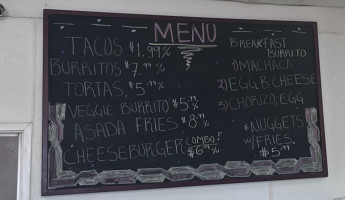 MENU
TACOS $1.99
BURRITOS $7.99
TORTAS $5.99
VEGGIE BURRITO $5.99
ASADA FRIES $8.99
CHEESEBURGER COMBO! $6.99
BREAKFAST
BURRITO
1) MACHACA
2) EGG, B. CHEESE
3) CHORIZO, EGG
*NUGGETS
w/ FRIES
$5.99